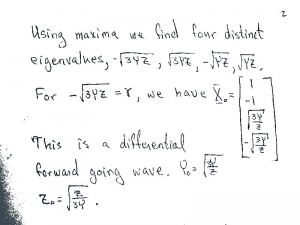 2
Using maxima we find four distinct
eigenvalues, -√3YZ, √3YZ, -√YZ, √YZ.
For -√3YZ = γ, we have X₀ = [1, -1, √(3Y/Z), -√(3Y/Z)]
This is a differential
forward going wave. Y₀ = √(3Y/Z)
Z₀ = √(Z/3Y).